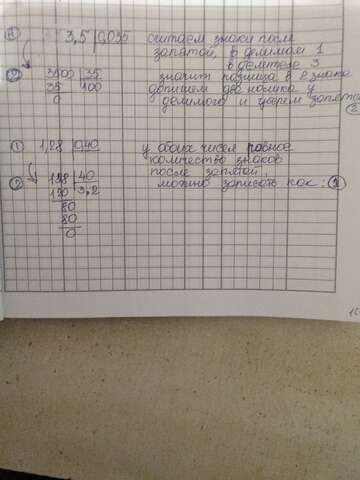 ① 3,5 | 0,035 считаем знаки после
запятой, в делимом 1
в делителе 3
② 3500 | 35 значит разница в 2 знака
35 | 100 допишем два нолика у
0 делимого и уберем запятые
① 1,28 | 0,40 у обоих чисел равное
количество знаков
после запятой,
② 128 | 40 можно записать как: ②
120 | 3,2
80
80
0